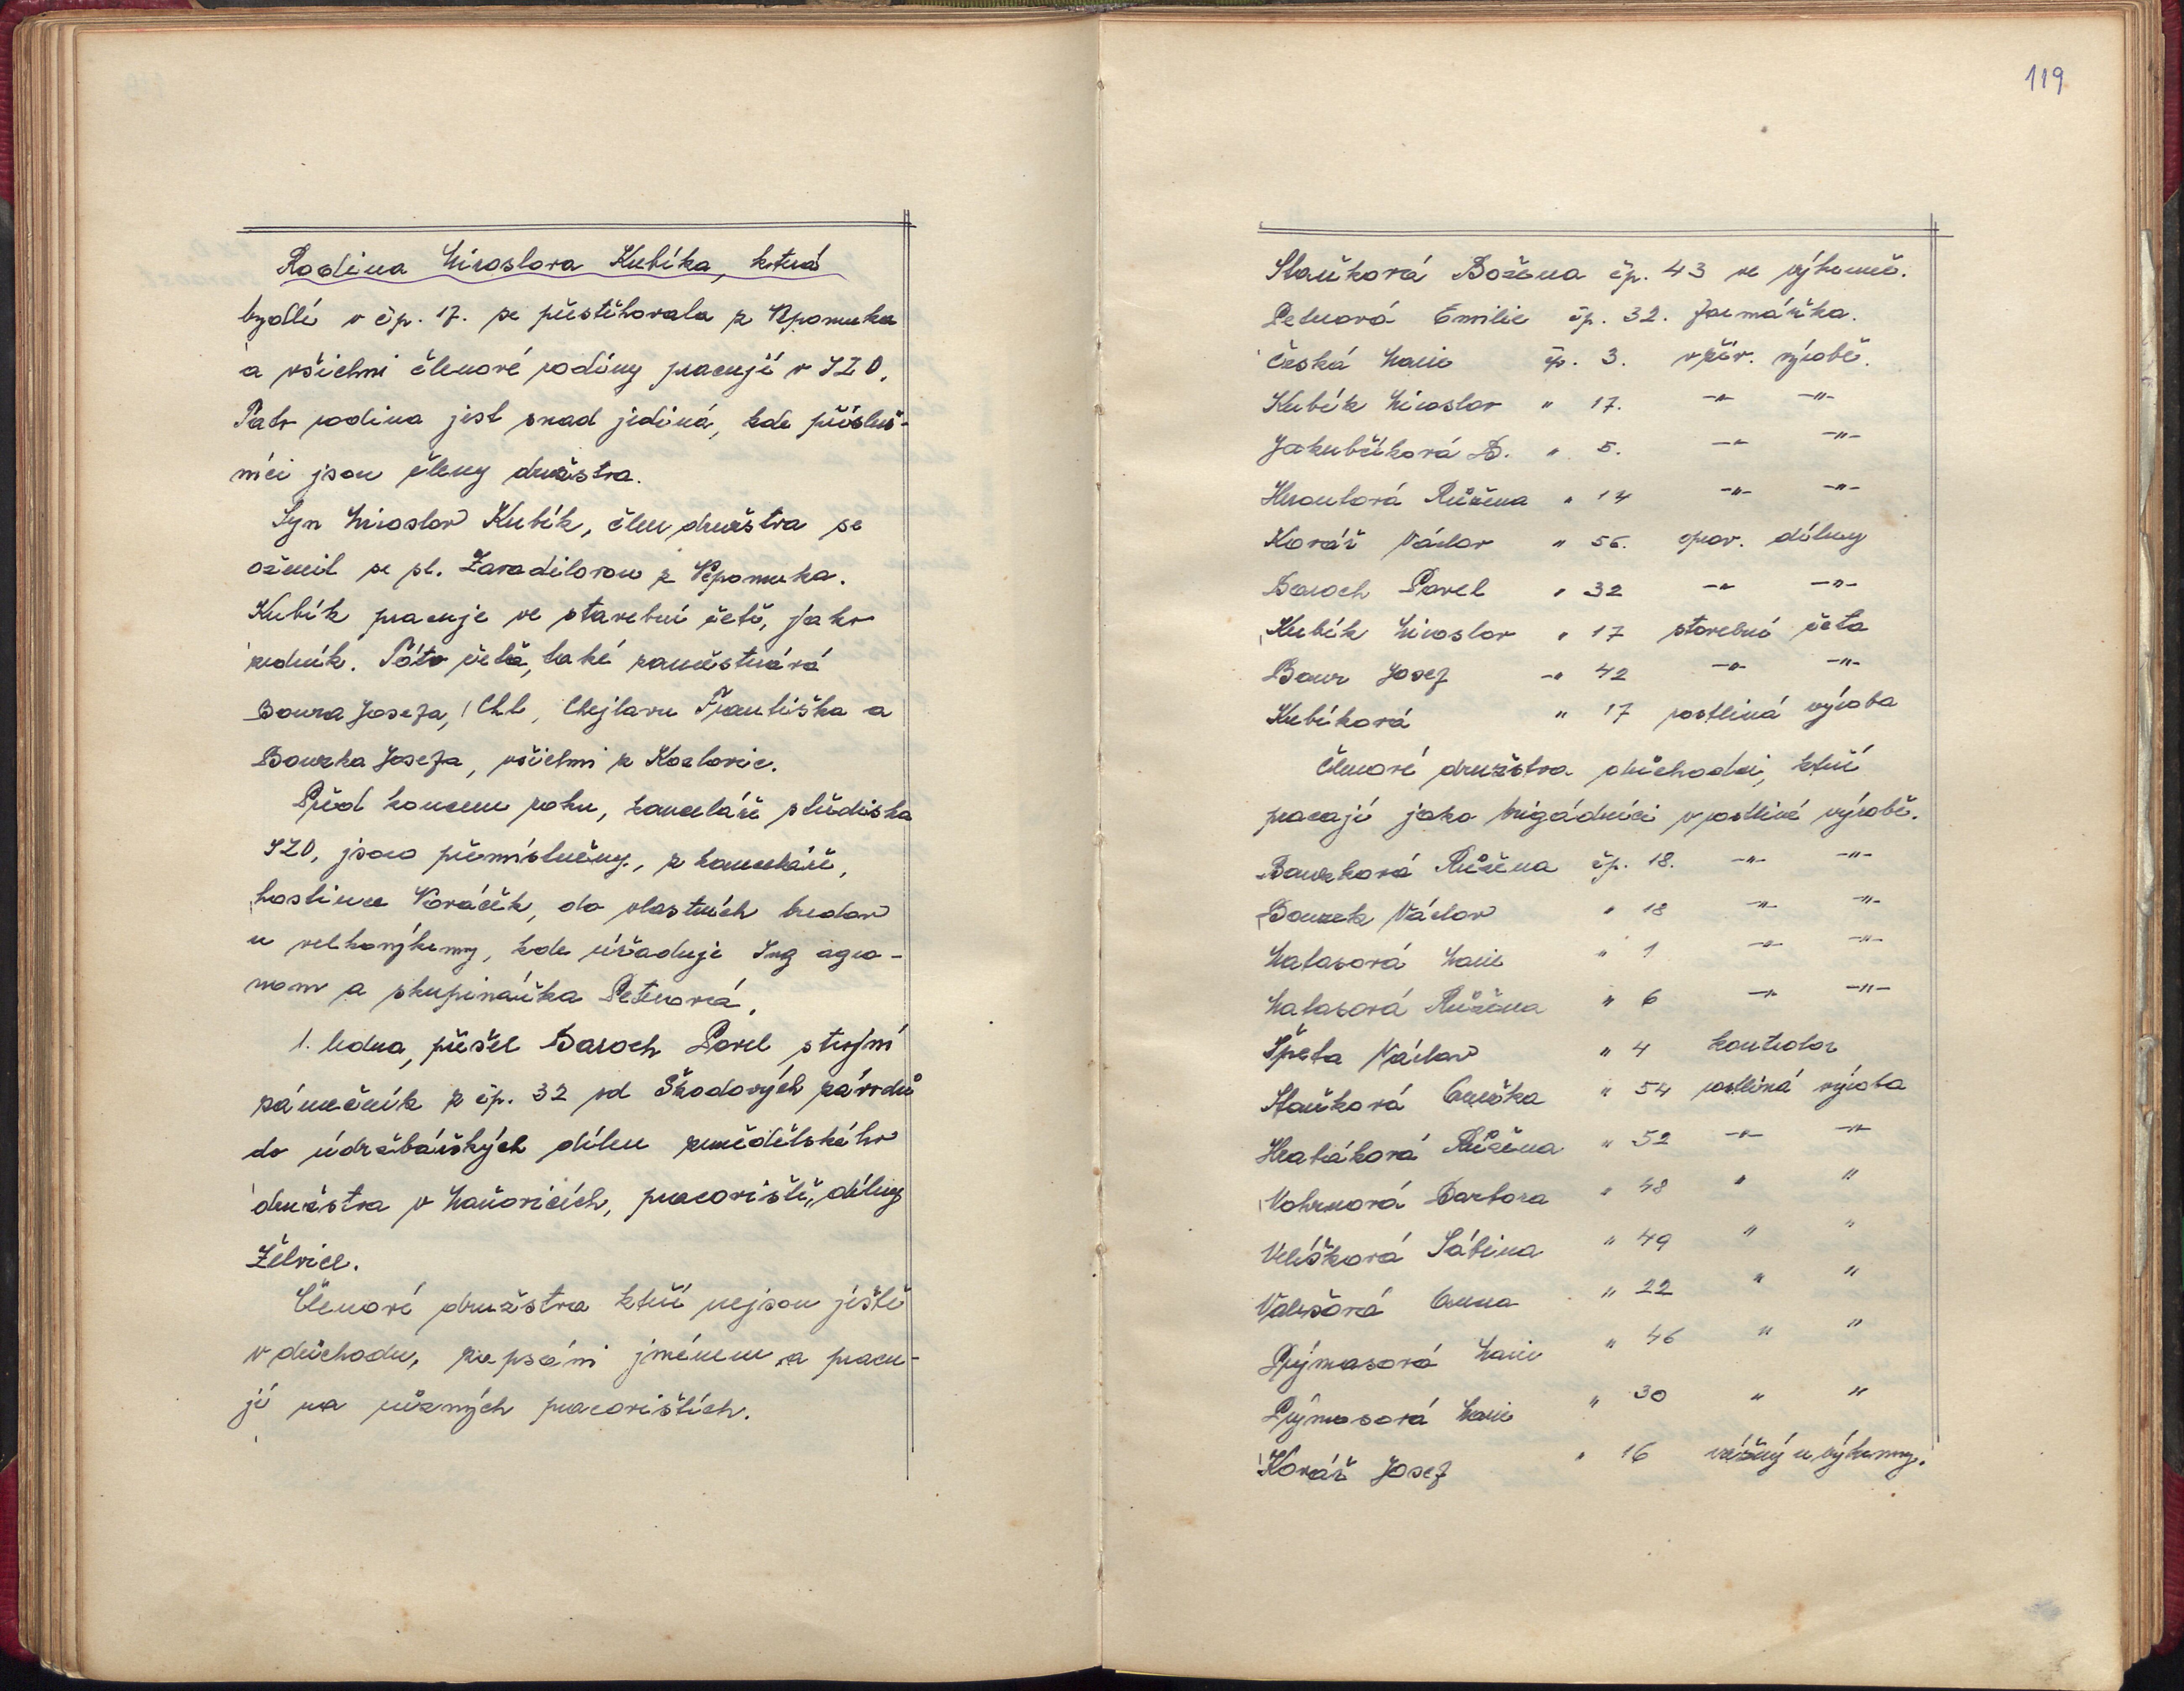 Rodina Miroslava Kubíka, která
bydlí v čp. 17. se přestěhovala z Nepomuka
a všichni členové rodiny pracují v JZD.
Tato rodina jest snad jediná, kde přísluš-
níci jsou členy družstva.
Syn Miroslav Kubík, člen družstva se
oženil se sl. Zavadilovou z Nepomuka.
Kubík pracuje ve stavební četě, jako
zedník. Táto četa, také zaměstnává
Boura Josefa, Chejlavu Františka a
Bouzka Josefa, všichni z Kozlovic.
Před koncem roku, kanceláře střediska
JZD, jsou přemístněny, z kanceláře,
hostince Kováčík, do vlastních budov
u velkovýkrmny, kde úřaduje Ing agro-
nom a skupinářka Petrová.
1. ledna, přešel Baroch Pavel, strojní
zámečník z čp. 32 od Škodových závodů
do údržbářských dílen zemědělského
družstva v Maňovicích, pracoviště, dílny
Želvice.
Členové družstva kteří nejsou ještě
v důchodu, zapsáni jménem a pracu-
jí na různých pracovištích.
119
Staňková Božena čp. 43 ve výkrmně.
Petrová Emilie čp. 32. farmářka.
Česká Marie čp. 3. v živ. výrobě.
Kubík Miroslav " 17. -"- -"-
Jakubčíková B. " 5. -"- -"-
Kroutová Růžena " 14 -"- -"-
Kovář Václav " 56. oprav. dílny
Baroch Pavel " 32 -"- -"-
Kubík Miroslav " 17 stavební četa
Bour Josef -" 42 -"- -"-
Kubíková " 17 rostliná výroba
Členové družstva důchodci, kteří
pracají jako brigádníci v rostliné výrobě.
Bouzková Růžena čp. 18. -"- -"-
Bouzek Václav " 18 -"- -"-
Matasová Marie " 1 -"- -"-
Matasová Růžena " 6 -"- -"-
Špeta Václav " 4 kontrolor
Staňková Anežka " 54 rostliná výroba
Hrabáková Růžena " 52 -"- -"-
Vohrnová Barbora " 48 " "
Velíšková Sabina " 49 " "
Anna " 22 " "
Prýmasová Marie " 46 " "
Prýmasová Marie " 30 " "
Kovář Josef " 16 u výkrmny.